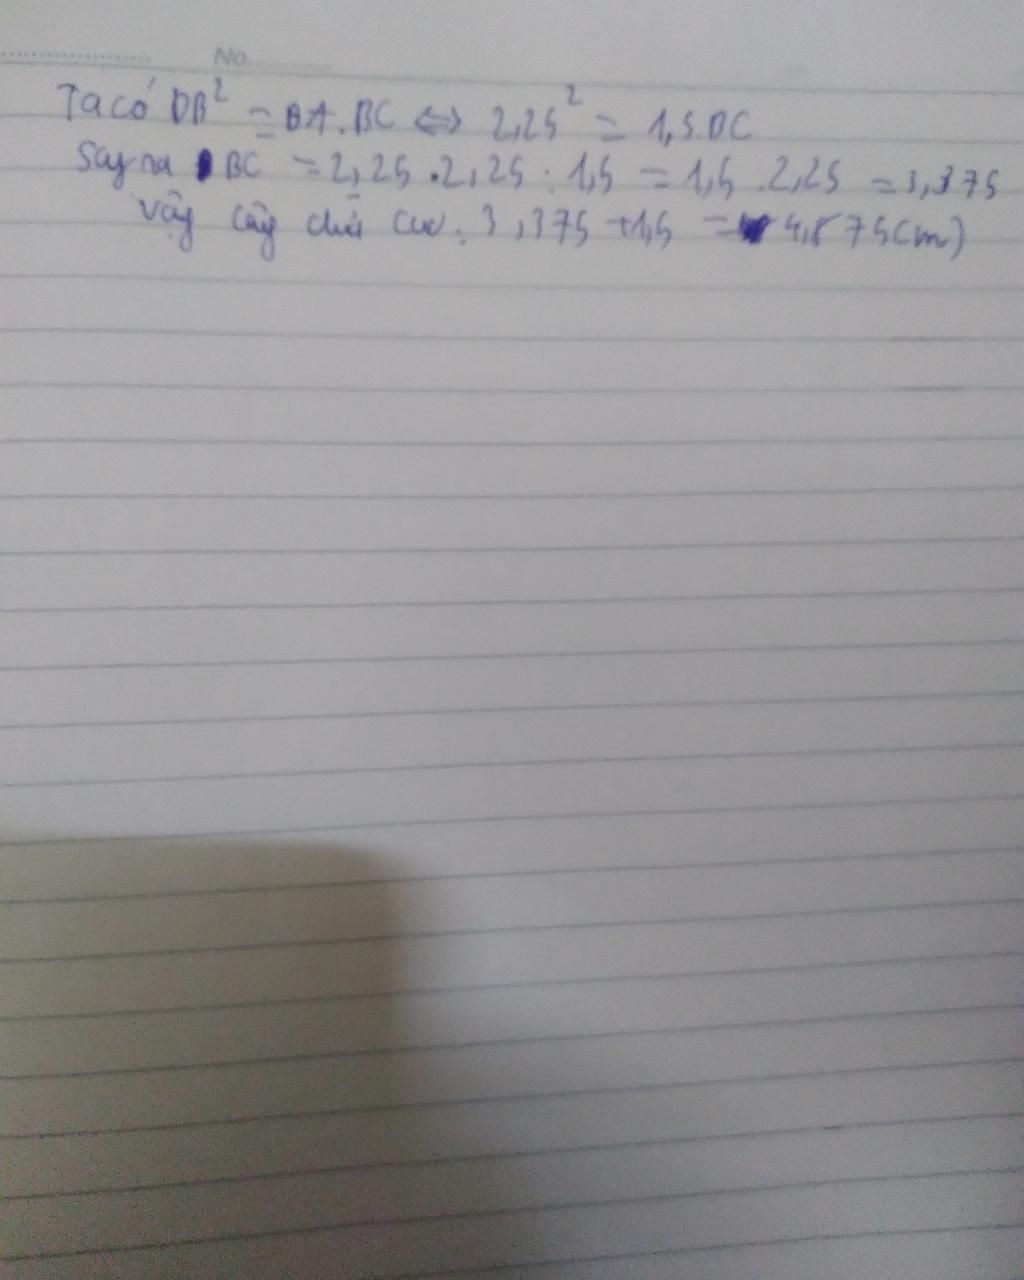 No
Ta có DB² = BA.BC ⇔ 2,25² = 1,5.BC
Suy ra BC = 2,25.2,25:1,5 = 1,5.2,25 = 3,375
Vậy cây cao: 3,375 + 1,5 = 4,875(m)